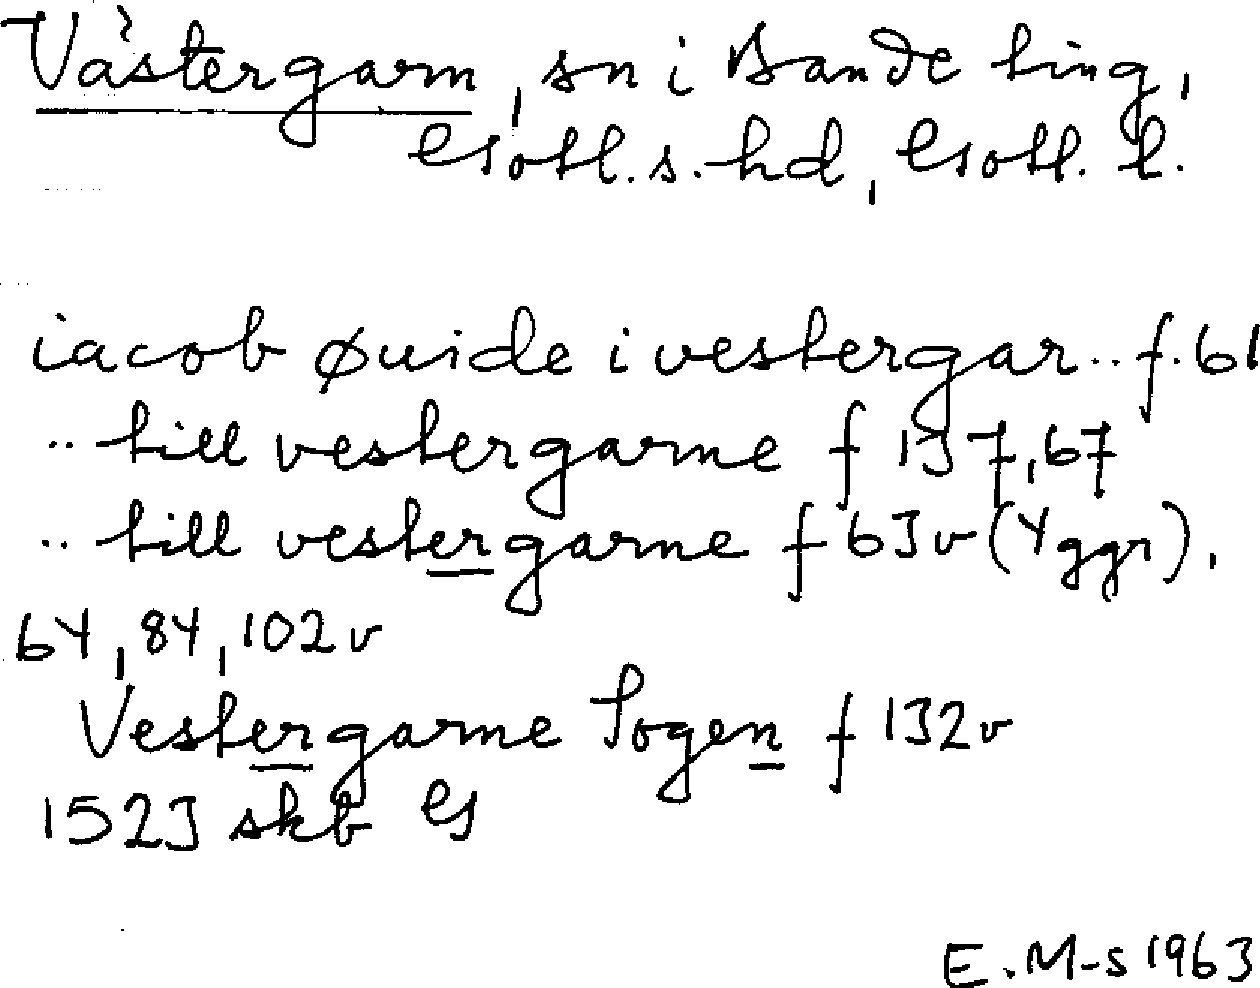 Västergarn, sn i Bande ting,
Gotl. s. hd, Gotl. l.
iacob øuide i vestergar.. f. 61
.. till vestergarne f 137, 67
.. till vestergarne f 63v (4 ggr),
64, 84, 102v
Vestergarne sogen f 132v
1523 skb G
E. M-s 1963